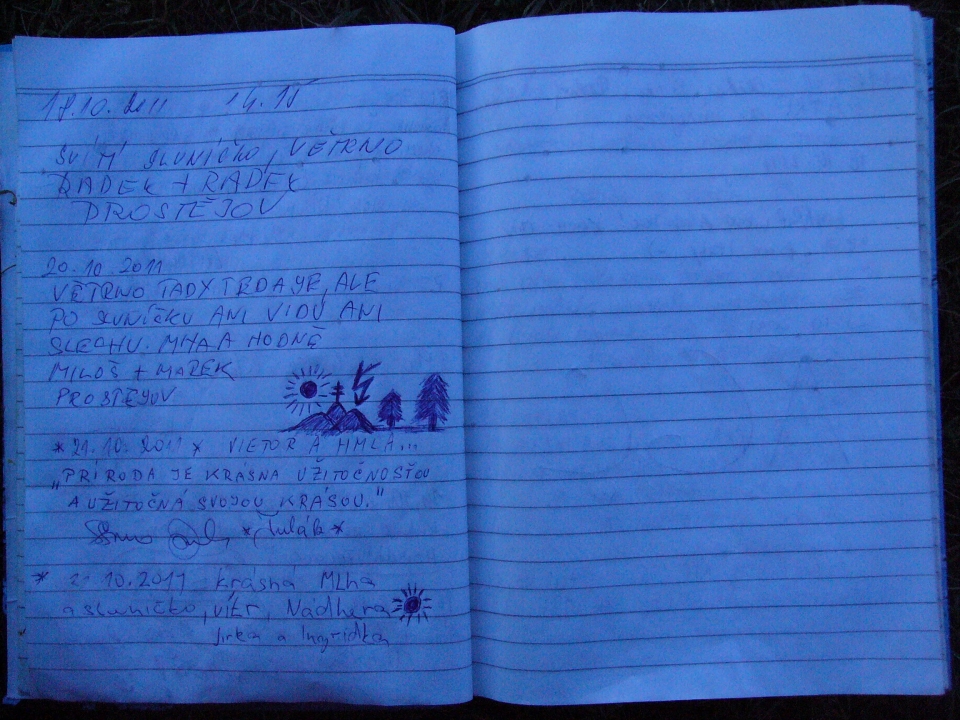 18.10.2011 14.15
SVÍTÍ SLUNÍČKO, VĚTRNO
RADEK + RADEK
PROSTĚJOV
20.10.2011
VĚTRNO TADY TEDA JE, ALE
PO SLUNÍČKU ANI VIDU ANI
SLECHU. MHA A HODNĚ
MILOŠ + MAREK
PROSTEJOV
*21.10.2011* VIETOR A HMLA...
„PRÍRODA JE KRÁSNA UŽITOČNOSŤOU
A UŽITOČNÁ SVOJOU KRÁSOU."
*tulák*
* 10.2011 krásná Mlha
a sluníčko, vítr, Nádhera
Jirka a Ingridka